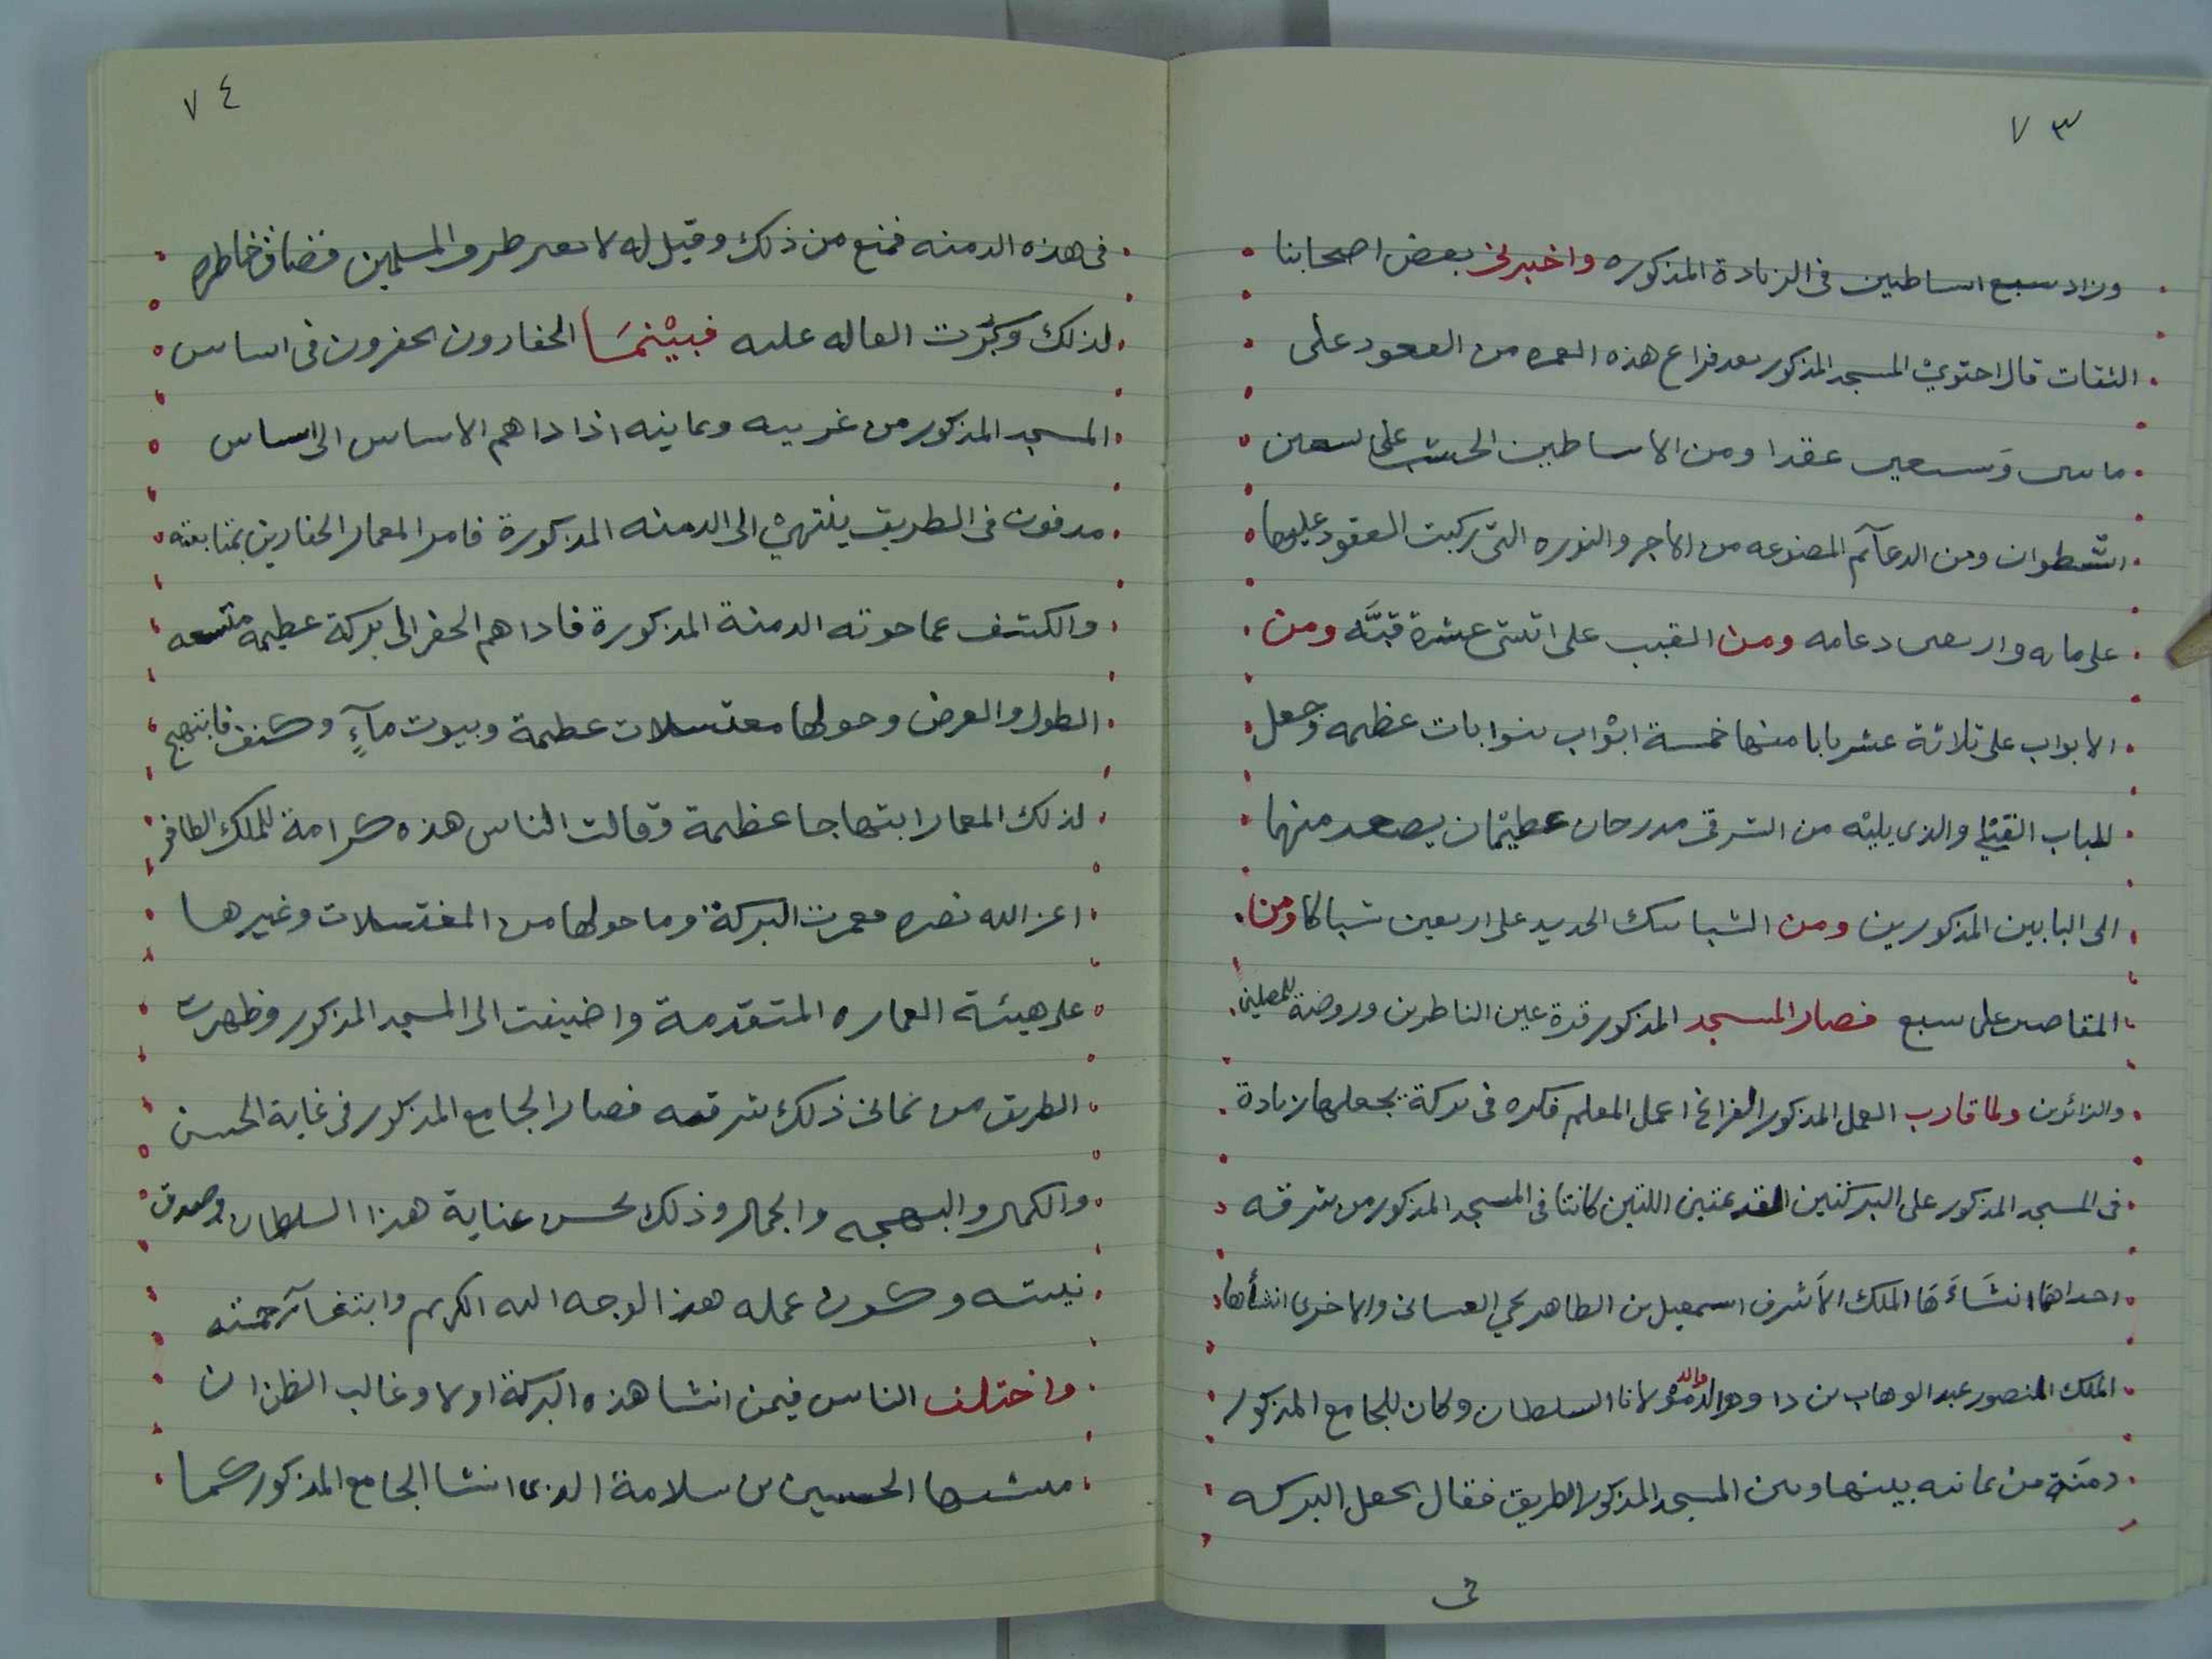 ٧٣
وزاد سبع اساطين فى الزيادة المذكوره واخبرنى بعض اصحابنا
الثقات قال احتوى المسجد المذكور بعد فراغ هذه العمره من العقود على
ماىىں وسبعين عقدا ومن الاساطين الخشب على تسعين
اسطوان ومن الدعآئم المصنوعه من الاجر والنوره التى ركبت العقود عليها
على مايه واربعين دعامه ومن القبب على اثنتى عشرة قبَّه ومن
الابواب على ثلاثة عشر بابا منها خمسة ابْواب ببوابات عظيمه وجعل
للباب القبْلي والذى يليْه من الشرقى مدرجان عظيمْان يصعد منهما
الى البابين المذكورين ومن الشبابيك الحديد على اربعين شباكا ومن
المقاصير على سبع فصار المسجد المذكور قرة عين الناظرين وروضة للمصلين
والزائرين ولما قارب العمل المذكور الفراغ اعمل المعلم فكره فى بركة يجعلها زيادة
فى المسجد المذكور على البركتين القديمتين اللتين كانتا فى المسجد المذكور من شرقيه
احداهما انشَاءَهَا الملك الاَشرف اسمعيل بن الطاهر يحي الغسانى والاخرى انشأها
الملك المنصور عبد الوهاب بن داود والد مولانا السلطان وكان للجامع المذكور
دمَنة من يمانيه بينها وبين المسجد المذكور الطريق فقال يجعل البركه
فى
٧٤
فى هذه الدمنه فمنع من ذلك وقيل له لا تغير طريق المسلمين فضاق خاطره
لذلك وكَبُرَت القاله عليه فبيْنمَا الحفارون يحفرون فى اساس
المسجد المذكور من غربيه ويمانيه اذا داهم الاساس الى اساس
مدفون فى الطريق ينتهىْ الى الدمنه المذكورة فامر المعمار الحفارين بمتابعته
والكشف عما حوته الدمنة المذكورة فاداهم الحفر الى بركة عظيمة متسعه
الطول والعرض وحولها مغتسلات عظيمة وبيوت مآءٍ وكنف فابتهج
لذلك المعمار ابتهاجا عظيمة وقالت الناس هذه كرامة للملك الظافر
اعز الله نصره فعمرت البركة وما حولها من المغتسلات وغيرها
على هيئة العماره المتقدمة واضيفت الى المسجد المذكور وظهرت
الطريق من يمانى ذلك شرقيه فصار الجامع المذكور فى غاية الحسن
والكمال والبهجه والجمال وذلك بحسن عناية هذا السلطان وصدق
نيته وكون عمله هذا لوجه الله الكريم وابتغآ رحمته
واختلف الناس فيمن انشا هذه البركة اولا وغالب الظن ان
منشيها الحسين بن سلامة الذى انشا الجامع المذكور كما